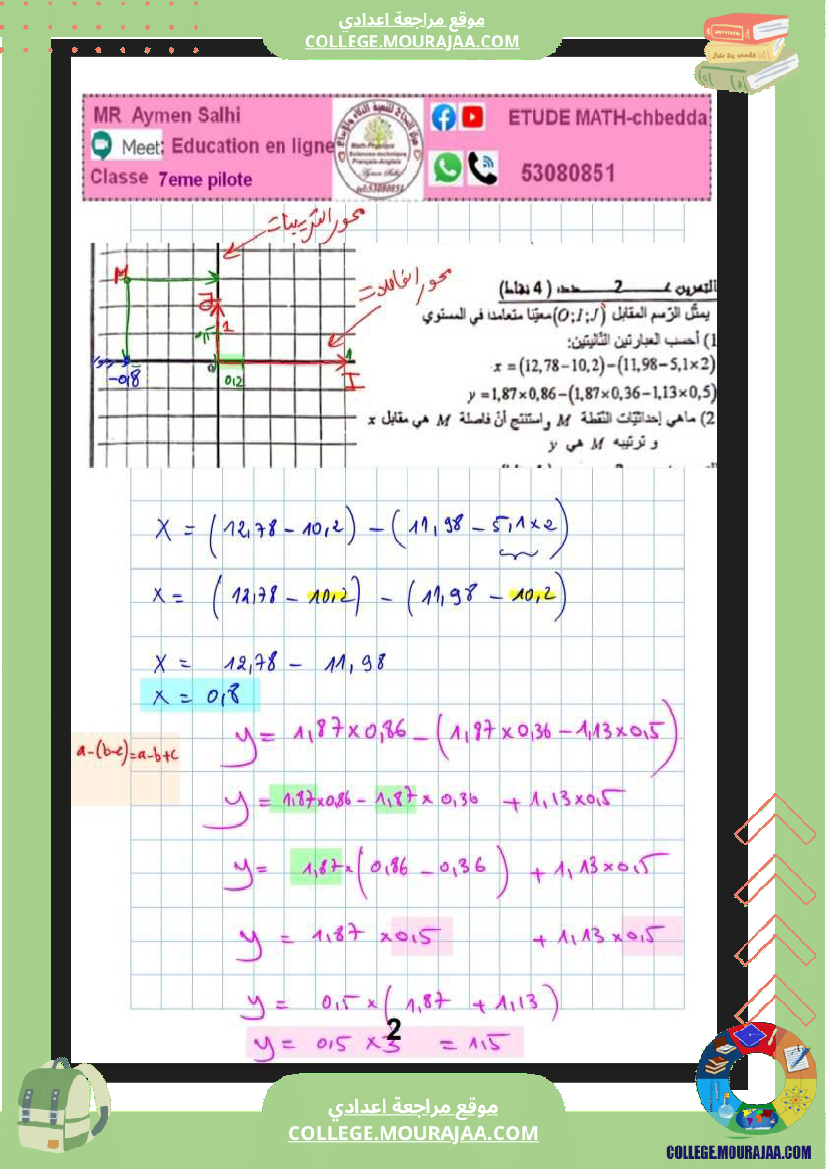 موقع مراجعة اعدادي
COLLEGE.MOURAJAA.COM
MR Aymen Salhi
Meet: Education en ligne
Classe 7eme pilote
ETUDE MATH-chbedda
53080851
محور الترتيبات
محور الفاصلات
M
J
1
0
0,2
1
I
-0,8
التمرين عـــ2ـــدد ( 4 نقاط)
يمثل الرّسم المقابل (O;I;J) معيّنا متعامدا في المستوي
1) أحسب العبارتين التّاليتين:
x = (12,78−10,2)−(11,98−5,1×2)
y = 1,87×0,86−(1,87×0,36−1,13×0,5)
2) ماهي إحداثيّات النّقطة M واستنتج أنّ فاصلة M هي مقابل x
و ترتيبه M هي y
X = (12,78 − 10,2) − (11,98 − 5,1×2)
X = (12,78 − 10,2) − (11,98 − 10,2)
X = 12,78 − 11,98
X = 0,8
y = 1,87×0,86 − (1,87×0,36 − 1,13×0,5)
a-(b-c)=a-b+c
y = 1,87×0,86 − 1,87×0,36 + 1,13×0,5
y = 1,87×(0,86 − 0,36) + 1,13×0,5
y = 1,87 ×0,5 + 1,13×0,5
y = 0,5×(1,87 + 1,13)
2
y = 0,5 ×3 = 1,5
موقع مراجعة اعدادي
COLLEGE.MOURAJAA.COM
COLLEGE.MOURAJAA.COM